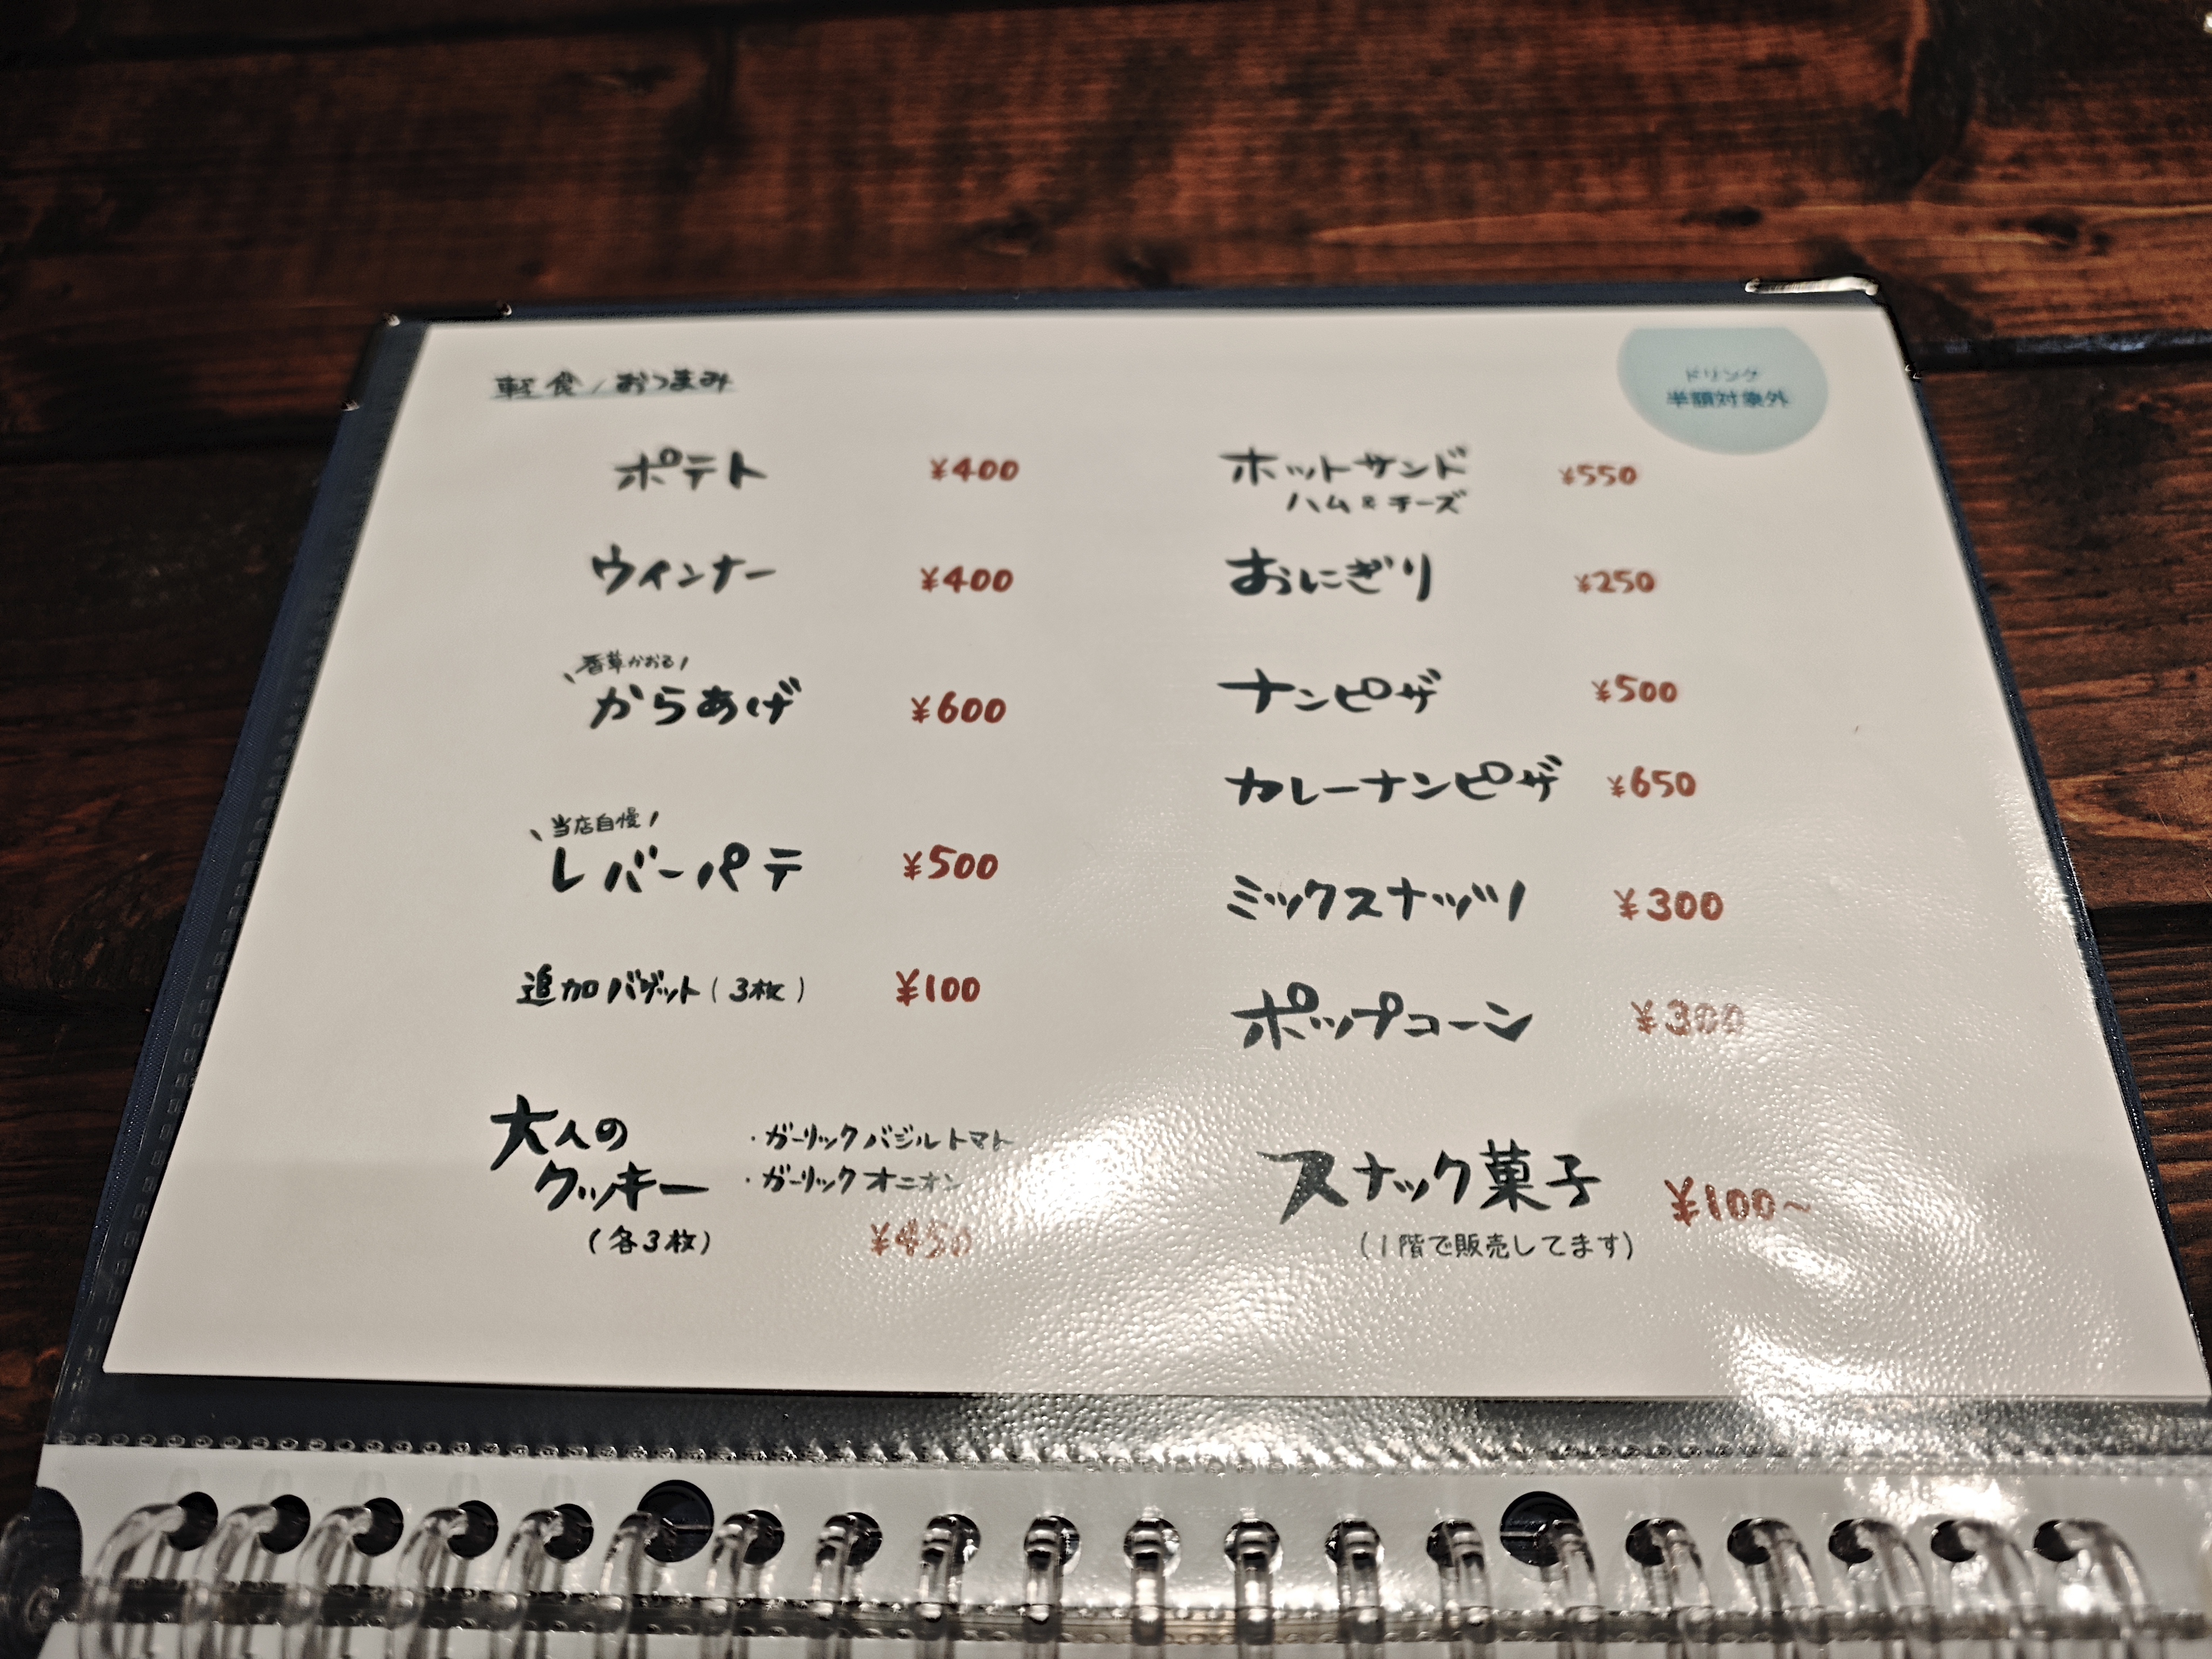 軽食/おつまみ
ドリンク
半額対象外
ポテト ¥400
ウインナー ¥400
\香草かおる/
からあげ ¥600
\当店自慢/
レバーパテ ¥500
追加バゲット(3枚) ¥100
大人の
クッキー
(各3枚)
・ガーリックバジルトマト
・ガーリックオニオン
¥450
ホットサンド ¥550
ハム&チーズ
おにぎり ¥250
ナンピザ ¥500
カレーナンピザ ¥650
ミックスナッツ ¥300
ポップコーン ¥300
スナック菓子 ¥100~
(1階で販売してます)